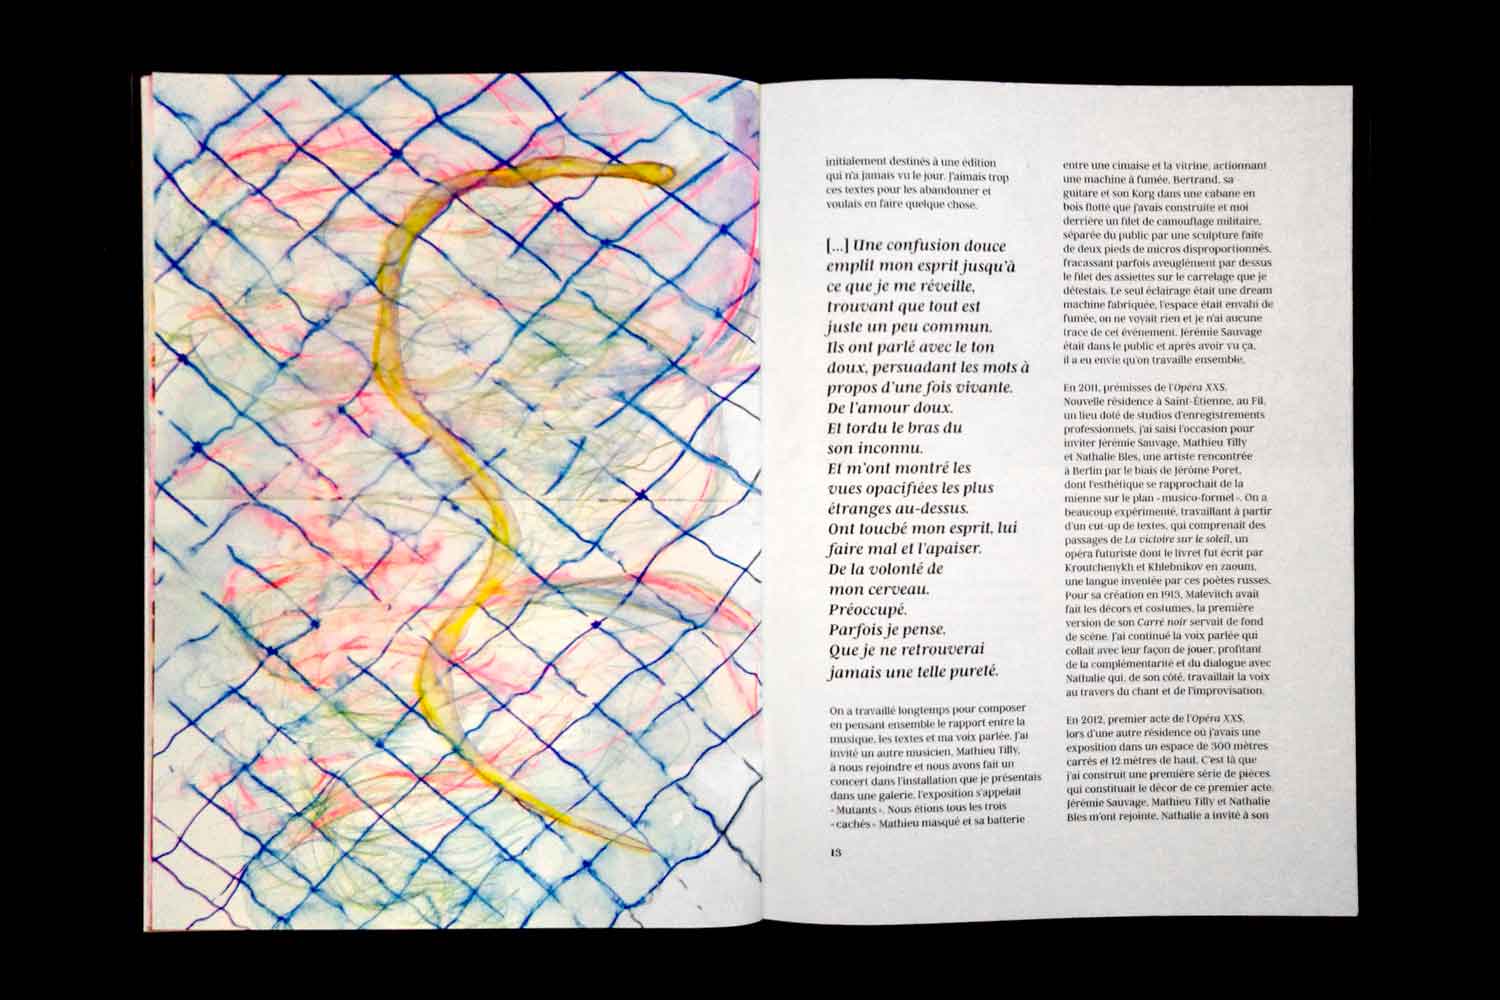 initialement destinés à une édition
qui n'a jamais vu le jour. J'aimais trop
ces textes pour les abandonner et
voulais en faire quelque chose.
[...] Une confusion douce
emplit mon esprit jusqu'à
ce que je me réveille,
trouvant que tout est
juste un peu commun.
Ils ont parlé avec le ton
doux, persuadant les mots à
propos d'une fois vivante.
De l'amour doux.
Et tordu le bras du
son inconnu.
Et m'ont montré les
vues opacifiées les plus
étranges au-dessus.
Ont touché mon esprit, lui
faire mal et l'apaiser.
De la volonté de
mon cerveau.
Préoccupé.
Parfois je pense.
Que je ne retrouverai
jamais une telle pureté.
On a travaillé longtemps pour composer
en pensant ensemble le rapport entre la
musique, les textes et ma voix parlée. J'ai
invité un autre musicien, Mathieu Tilly,
à nous rejoindre et nous avons fait un
concert dans l'installation que je présentais
dans une galerie, l'exposition s'appelait
« Mutants ». Nous étions tous les trois
« cachés » Mathieu masqué et sa batterie
13
entre une cimaise et la vitrine, actionnant
une machine à fumée, Bertrand, sa
guitare et son Korg dans une cabane en
bois flotté que j'avais construite et moi
derrière un filet de camouflage militaire,
séparée du public par une sculpture faite
de deux pieds de micros disproportionnés,
fracassant parfois aveuglément par dessus
le filet des assiettes sur le carrelage que je
détestais. Le seul éclairage était une dream
machine fabriquée, l'espace était envahi de
fumée, on ne voyait rien et je n'ai aucune
trace de cet événement. Jérémie Sauvage
était dans le public et après avoir vu ça,
il a eu envie qu'on travaille ensemble.
En 2011, prémisses de l'Opéra XXS.
Nouvelle résidence à Saint-Étienne, au Fil,
un lieu doté de studios d'enregistrements
professionnels, j'ai saisi l'occasion pour
inviter Jérémie Sauvage, Mathieu Tilly
et Nathalie Bles, une artiste rencontrée
à Berlin par le biais de Jérôme Poret,
dont l'esthétique se rapprochait de la
mienne sur le plan « musico-formel ». On a
beaucoup expérimenté, travaillant à partir
d'un cut-up de textes, qui comprenait des
passages de La victoire sur le soleil, un
opéra futuriste dont le livret fut écrit par
Kroutchenykh et Khlebnikov en zaoum,
une langue inventée par ces poètes russes.
Pour sa création en 1913, Malevitch avait
fait les décors et costumes, la première
version de son Carré noir servait de fond
de scène. J'ai continué la voix parlée qui
collait avec leur façon de jouer, profitant
de la complémentarité et du dialogue avec
Nathalie qui, de son côté, travaillait la voix
au travers du chant et de l'improvisation.
En 2012, premier acte de l'Opéra XXS,
lors d'une autre résidence où j'avais une
exposition dans un espace de 300 mètres
carrés et 12 mètres de haut. C'est là que
j'ai construit une première série de pièces
qui constituait le décor de ce premier acte.
Jérémie Sauvage, Mathieu Tilly et Nathalie
Bles m'ont rejointe. Nathalie a invité à son